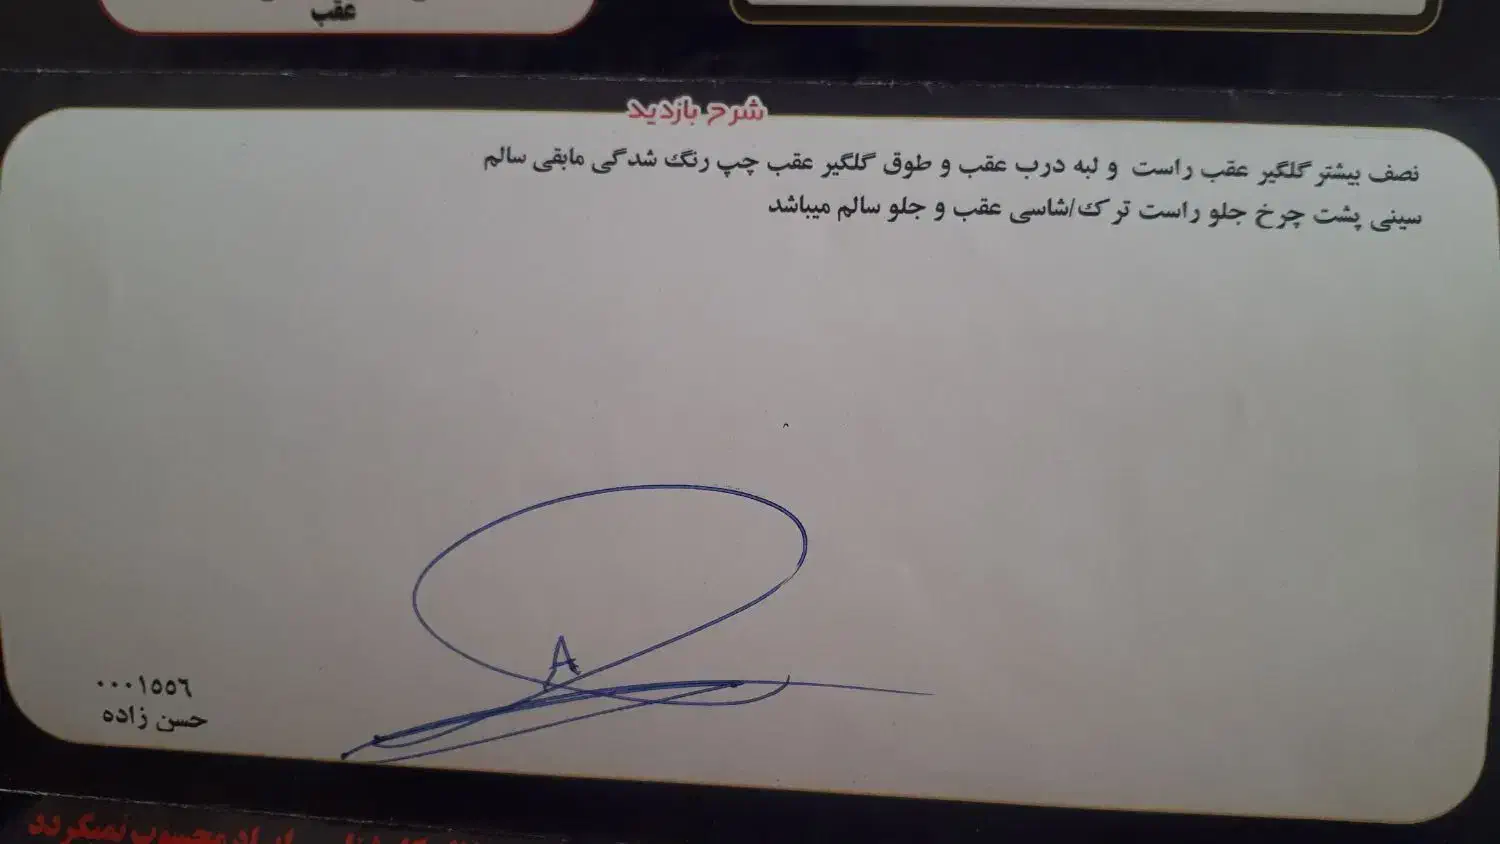 عقب
شرح بازدید
نصف بیشتر گلگیر عقب راست و لبه درب عقب و طوق گلگیر عقب چپ رنگ شدگی مابقی سالم
سینی پشت چرخ جلو راست ترک/شاسی عقب و جلو سالم میباشد
A
۰۰۰۱۵۵۶
حسن زاده
محسوب نمیگردد